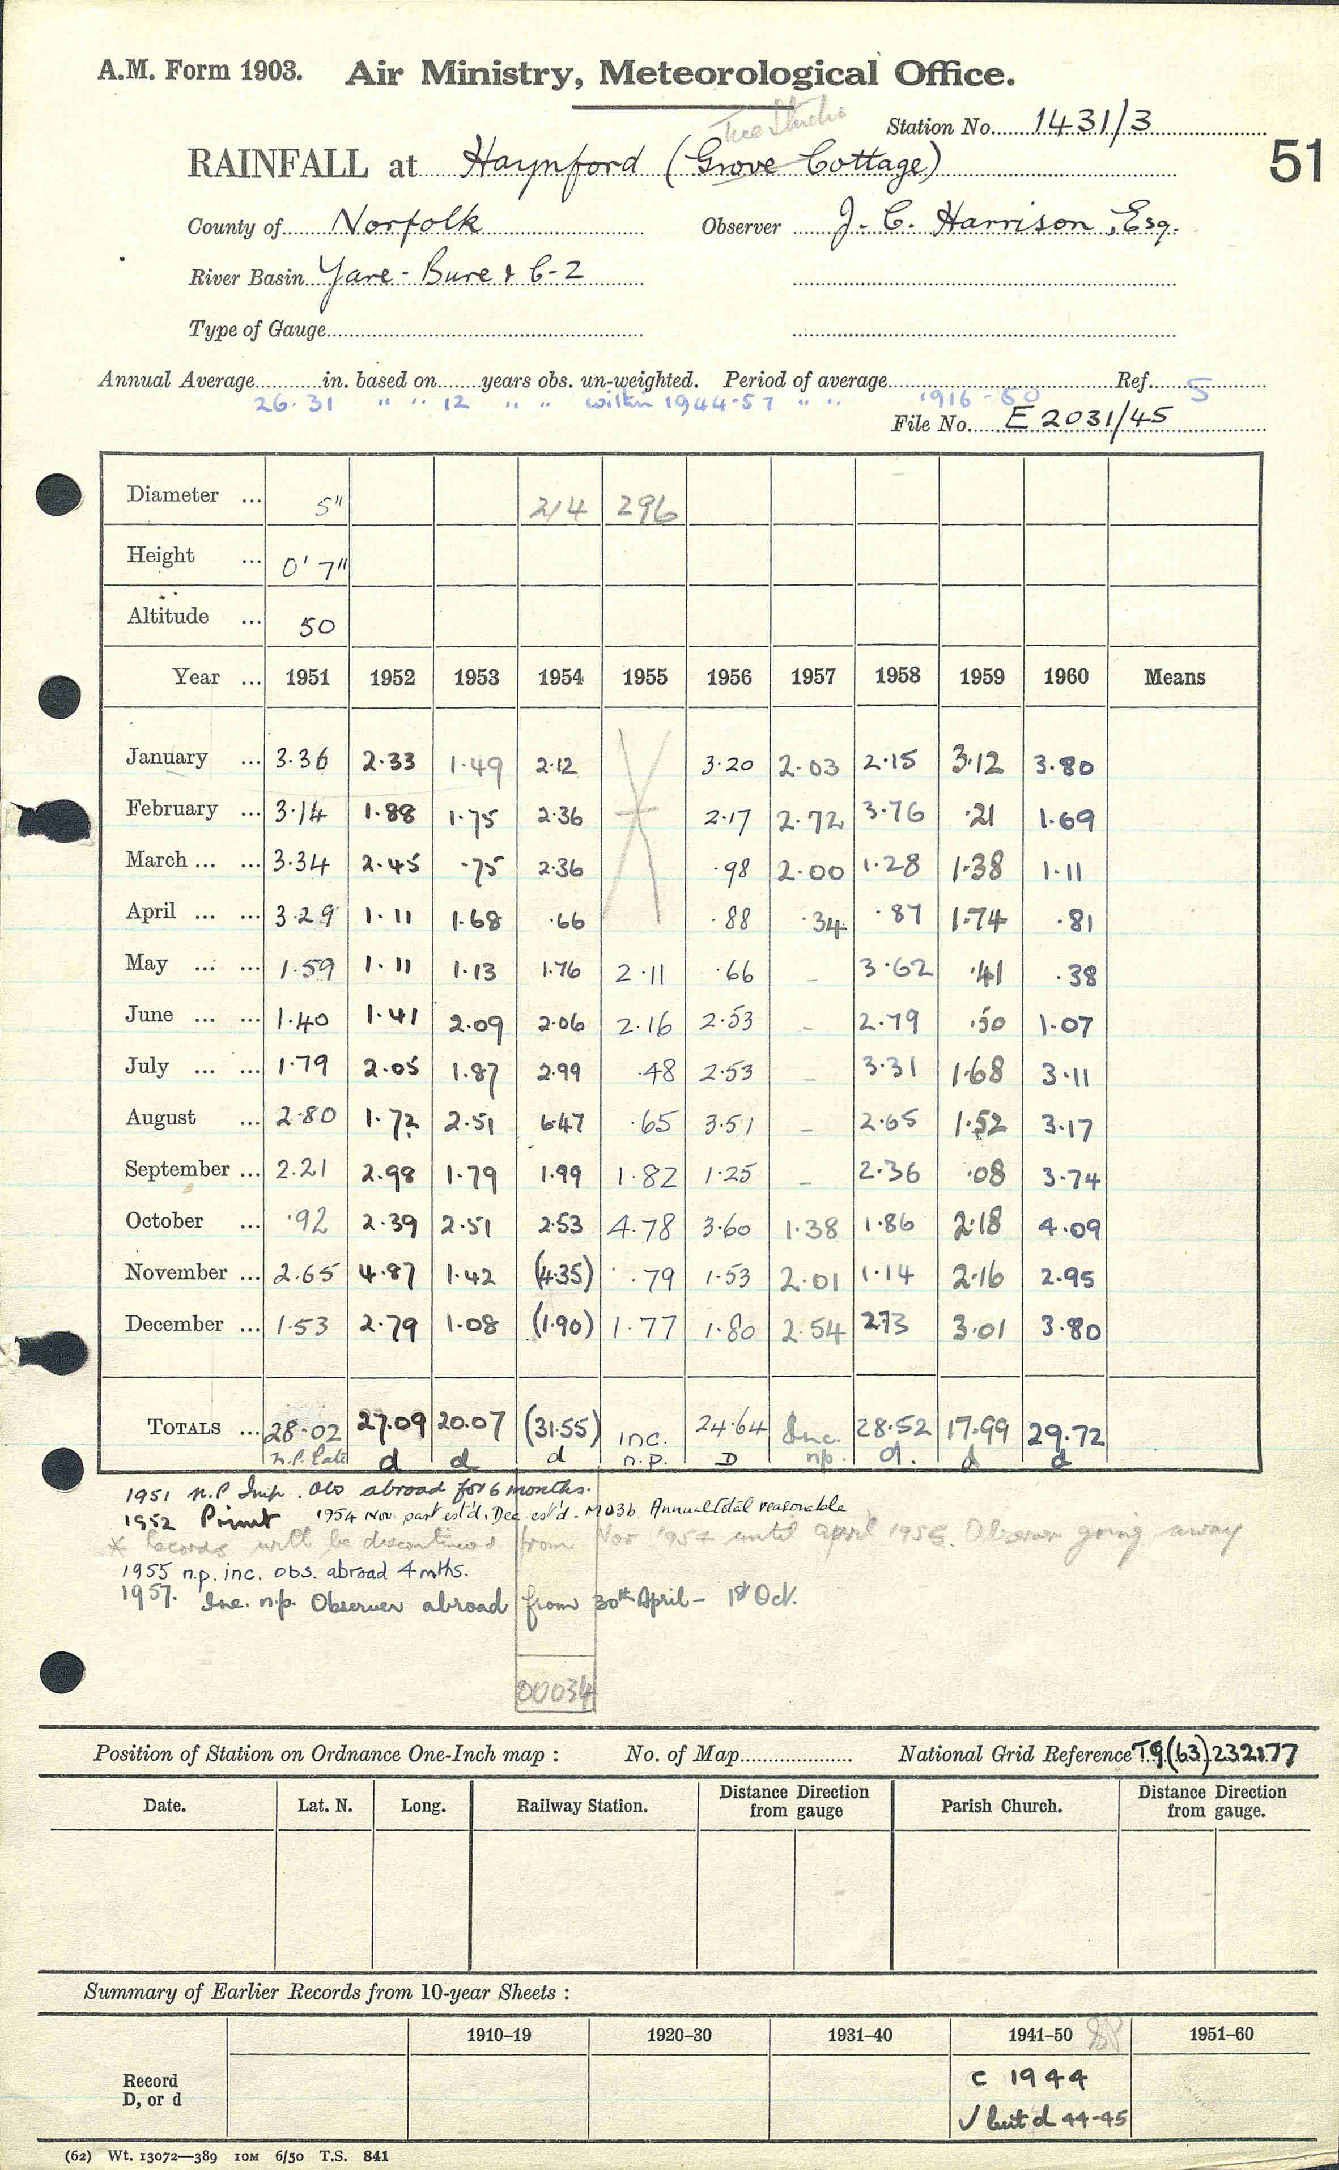 A.M. Form 1903. Air Ministry, Meteorological Office.
The Studio
Station No. 1431/3
RAINFALL at Haynford (Grove Cottage)
51
County of Norfolk Observer J. C. Harrison, Esq.
River Basin Yare - Bure & C-2
Type of Gauge
Annual Average in. based on years obs. un-weighted. Period of average Ref. 5
26.31 " " 12 " " within 1944-57 " " 1916-50
File No. E 2031/45
Diameter ... 5" 214 296
Height ... 0' 7"
Altitude ... 50
Year ... 1951 1952 1953 1954 1955 1956 1957 1958 1959 1960 Means
January ... 3.36 2.33 1.49 2.12 3.20 2.03 2.15 3.12 3.80
February ... 3.14 1.88 1.75 2.36 2.17 2.72 3.76 .21 1.69
March ... ... 3.34 2.45 .75 2.36 .98 2.00 1.28 1.38 1.11
April ... ... 3.29 1.11 1.68 .66 .88 .34 .87 1.74 .81
May ... ... 1.59 1.11 1.13 1.76 2.11 .66 - 3.62 .41 .38
June ... ... 1.40 1.41 2.09 2.06 2.16 2.53 - 2.79 .50 1.07
July ... ... 1.79 2.05 1.87 2.99 .48 2.53 - 3.31 1.68 3.11
August ... 2.80 1.72 2.51 6.47 .65 3.51 - 2.65 1.52 3.17
September ... 2.21 2.98 1.79 1.99 1.82 1.25 - 2.36 .08 3.74
October ... .92 2.39 2.51 2.53 4.78 3.60 1.38 1.86 2.18 4.09
November ... 2.65 4.87 1.42 (4.35) .79 1.53 2.01 1.14 2.16 2.95
December ... 1.53 2.79 1.08 (1.90) 1.77 1.80 2.54 2.73 3.01 3.80
TOTALS ... 28.02 27.09 20.07 (31.55) inc. 24.64 Inc. 28.52 17.99 29.72
n.p. Late d d d n.p. D np. d. d d
1951 n.p Imp. Obs abroad for 6 months.
1952 Print 1954 Nov. part est'd. Dec. est'd. M03b. Annual total reasonable
* Records will be discontinued from Nov 1957 until april 1958. Observer going away
1955 n.p. inc. obs. abroad 4 mths.
1957. Inc. n.p. Observer abroad from 30th April - 1st Oct.
00034
Position of Station on Ordnance One-Inch map : No. of Map National Grid Reference TG(63)232177
Date. Lat. N. Long. Railway Station. Distance from gauge Direction Parish Church. Distance from gauge. Direction
Summary of Earlier Records from 10-year Sheets :
1910-19 1920-30 1931-40 1941-50 1951-60
Record C 1944
D, or d √ but d 44-45
(62) Wt. 13072—389 10M 6/50 T.S. 841